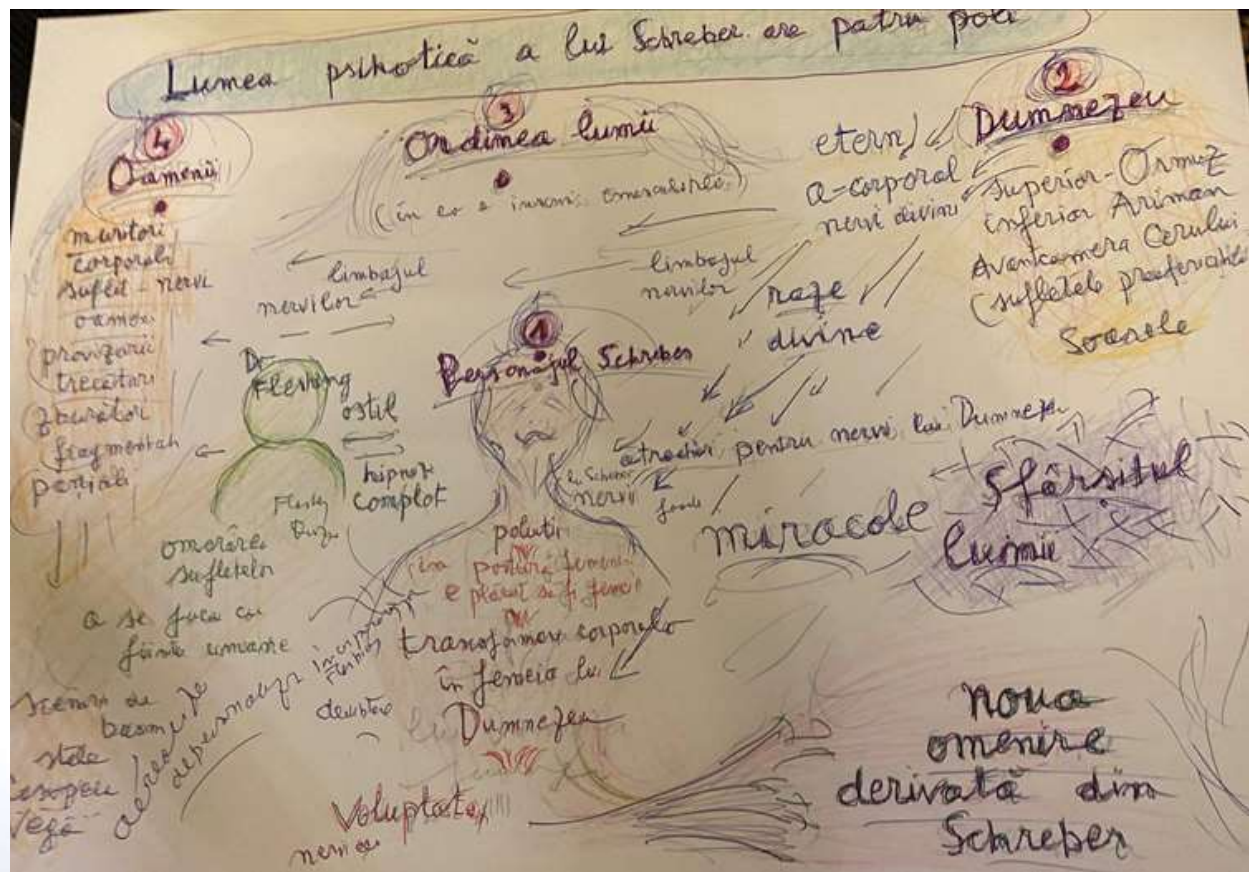 Lumea psihotică a lui Schreber are patru poli
4
Oamenii
muritori
corporali
suflet - nervi
oameni
provizorii
trecători
zburători
fragmentați
parțiali
3
Ordinea lumii
(în ea e înscrisă emascularea)
limbajul
nervilor
limbajul
nervilor
2
Dumnezeu
etern
a-corporal
nervi divini
Superior - Ormuz
inferior Ariman
Avantcamera Cerului
(sufletele preafericiților
Soarele
raze
divine
1
Personajul Schreber
Dr
Fleshing
ostil
hipnoză
complot
Fleshig
omorârea
sufletelor
a se juca cu
ființe umane
atractivi pentru nervii lui Dumnezeu
lui Schreber
nervii
poluții
în postură
e plăcut să fi femeie
transformare corporală
în femeia lui
Dumnezeu
Voluptate
miracole
Sfârșitul
lumii
basme
stele
depersonalizare
noua
omenire
derivată din
Schreber